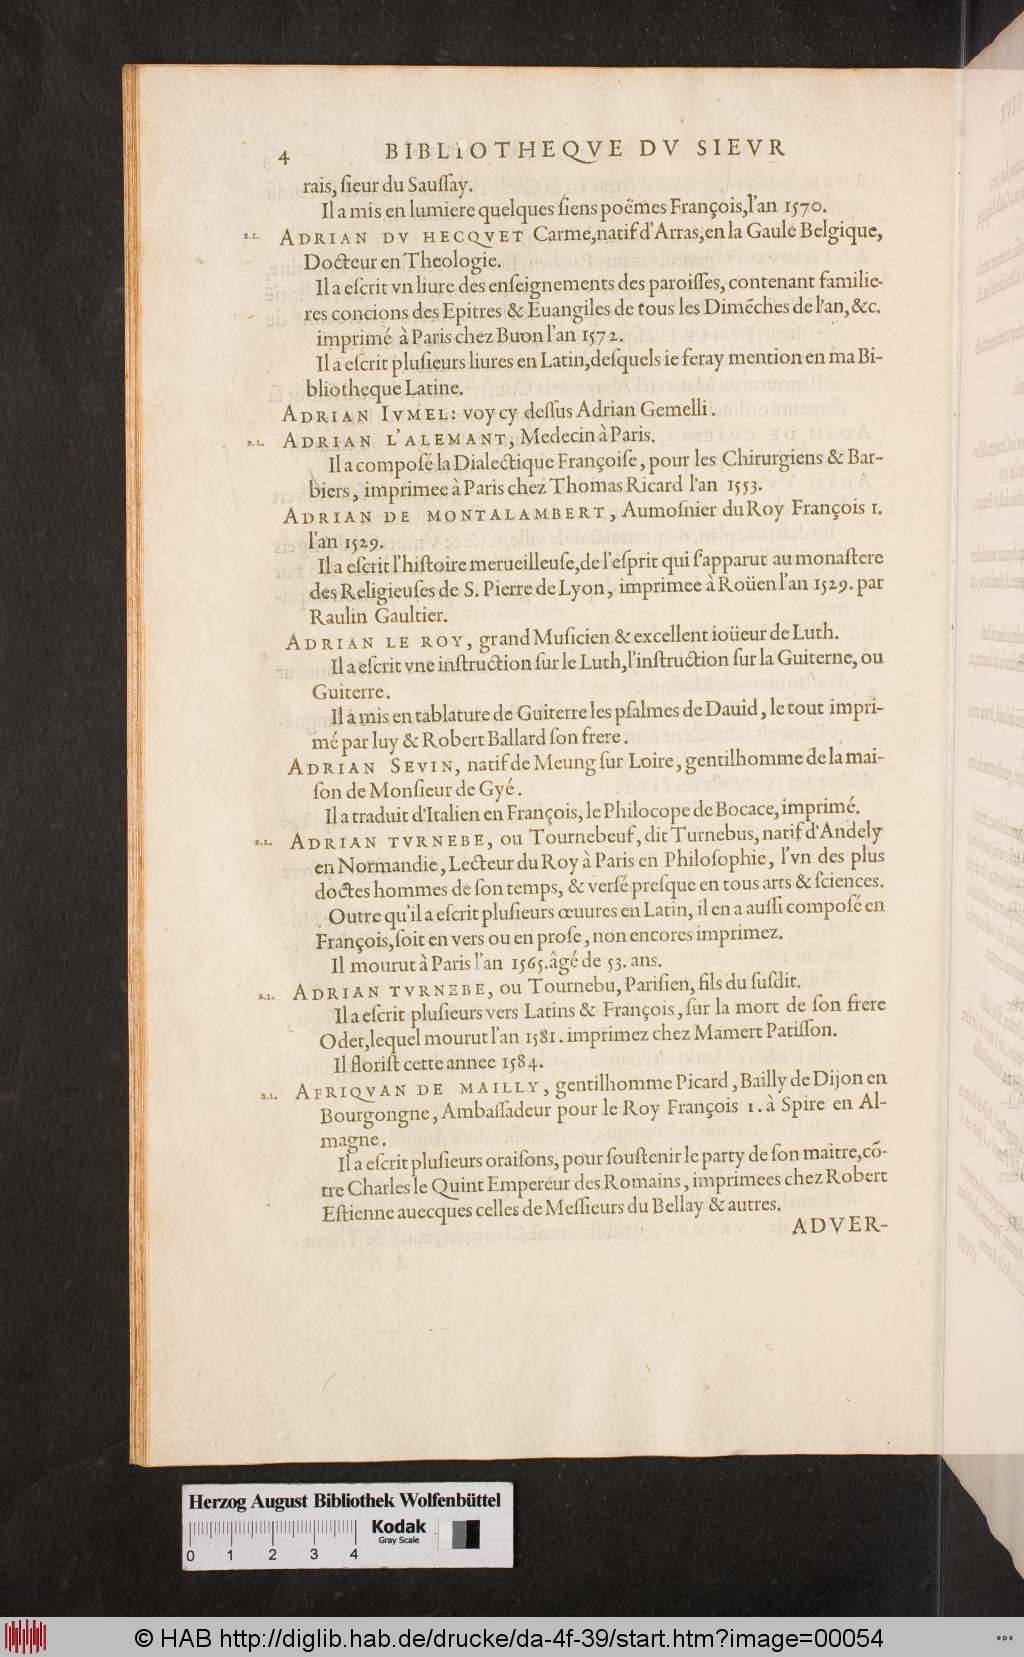 4 BIBLIOTHEQVE DV SIEVR
rais, ſieur du Sauſſay.
Il a mis en lumiere quelques ſiens poëmes François, l'an 1570.
B.L. ADRIAN DV HECQVET Carme, natif d'Arras, en la Gaule Belgique,
Docteur en Theologie.
Il a eſcrit vn liure des enſeignements des paroiſſes, contenant familie-
res concions des Epitres & Euangiles de tous les Dimẽches de l'an, &c.
imprimé à Paris chez Buon l'an 1572.
Il a eſcrit pluſieurs liures en Latin, deſquels ie feray mention en ma Bi-
bliotheque Latine.
ADRIAN IVMEL: voy cy deſſus Adrian Gemelli.
B.L. ADRIAN L'ALEMANT, Medecin à Paris.
Il a compoſé la Dialectique Françoiſe, pour les Chirurgiens & Bar-
biers, imprimee à Paris chez Thomas Ricard l'an 1553.
ADRIAN DE MONTALAMBERT, Aumoſnier du Roy François 1.
l'an 1529.
Il a eſcrit l'hiſtoire merueilleuſe, de l'eſprit qui ſ'apparut au monaſtere
des Religieuſes de S. Pierre de Lyon, imprimee à Roüen l'an 1529. par
Raulin Gaultier.
ADRIAN LE ROY, grand Muſicien & excellent ioüeur de Luth.
Il a eſcrit vne inſtruction ſur le Luth, l'inſtruction ſur la Guiterne, ou
Guiterre.
Il a mis en tablature de Guiterre les pſalmes de Dauid, le tout impri-
mé par luy & Robert Ballard ſon frere.
ADRIAN SEVIN, natif de Meung ſur Loire, gentilhomme de la mai-
ſon de Monſieur de Gyé.
Il a traduit d'Italien en François, le Philocope de Bocace, imprimé.
B.L. ADRIAN TVRNEBE, ou Tournebeuf, dit Turnebus, natif d'Andely
en Normandie, Lecteur du Roy à Paris en Philoſophie, l'vn des plus
doctes hommes de ſon temps, & verſé preſque en tous arts & ſciences.
Outre qu'il a eſcrit pluſieurs œuures en Latin, il en a auſſi compoſé en
François, ſoit en vers ou en proſe, non encores imprimez.
Il mourut à Paris l'an 1565. âgé de 53. ans.
B.L. ADRIAN TVRNEBE, ou Tournebu, Pariſien, fils du ſuſdit.
Il a eſcrit pluſieurs vers Latins & François, ſur la mort de ſon frere
Odet, lequel mourut l'an 1581. imprimez chez Mamert Patiſſon.
Il floriſt cette annee 1584.
B.L. AFRIQVAN DE MAILLY, gentilhomme Picard, Bailly de Dijon en
Bourgongne, Ambaſſadeur pour le Roy François 1. à Spire en Al-
magne.
Il a eſcrit pluſieurs oraiſons, pour ſouſtenir le party de ſon maitre, cõ-
tre Charles le Quint Empereur des Romains, imprimees chez Robert
Eſtienne auecques celles de Meſſieurs du Bellay & autres.
ADVER-
Herzog August Bibliothek Wolfenbüttel
Kodak
Gray Scale
0 1 2 3 4
© HAB http://diglib.hab.de/drucke/da-4f-39/start.htm?image=00054